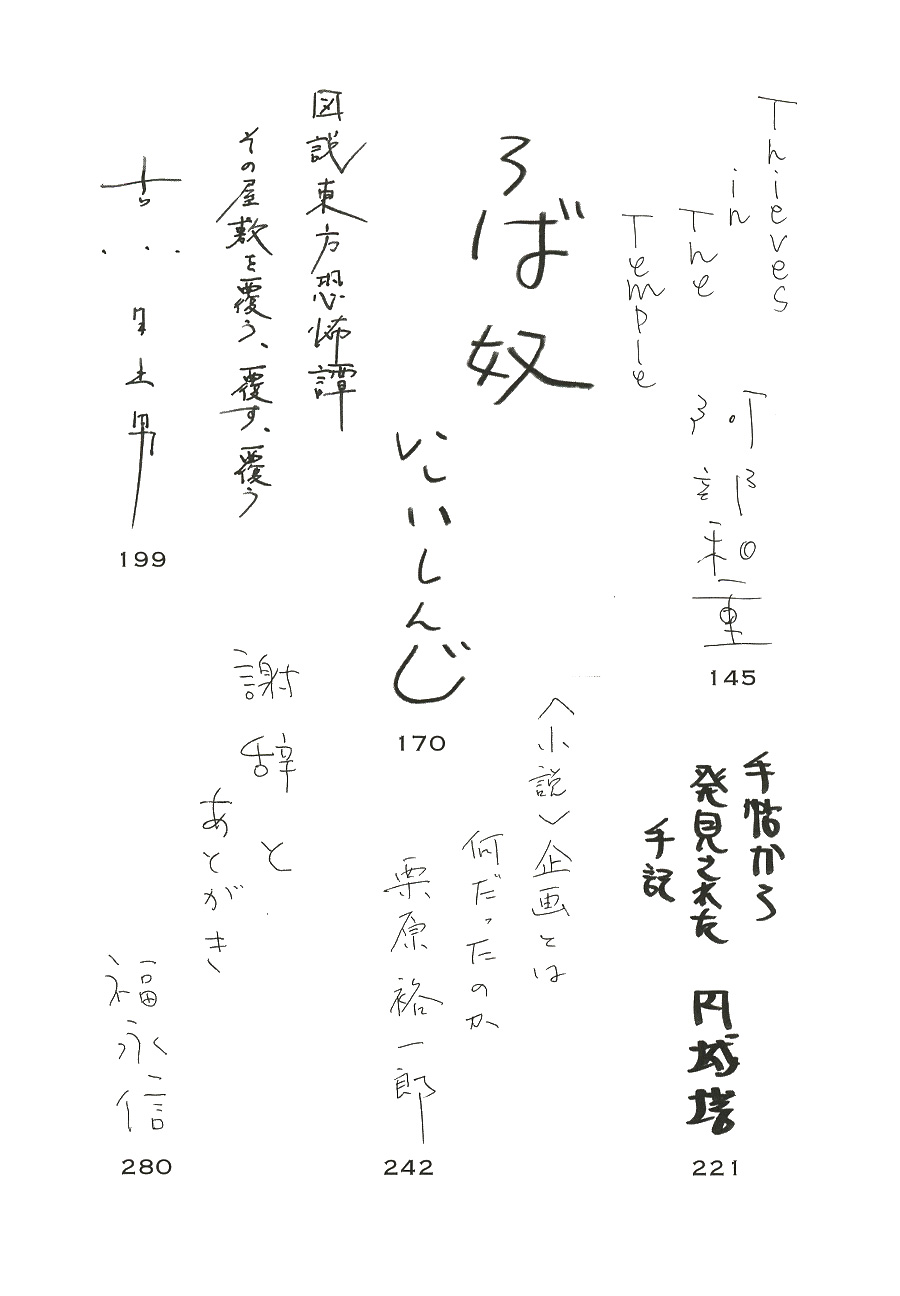 Thieves
in
The
Temple
阿部和重
145
ろば奴
いしいしんじ
170
図説東方恐怖譚
その屋敷を覆う、覆す、覆う
古川日出男
199
手帖から
発見された
手記
円城塔
221
〈小説〉企画とは
何だったのか
栗原裕一郎
242
謝辞と
あとがき
福永信
280